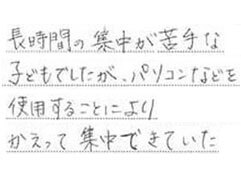 長時間の集中が苦手な
子どもでしたが、パソコンなどを
使用することにより
かえって集中できていた